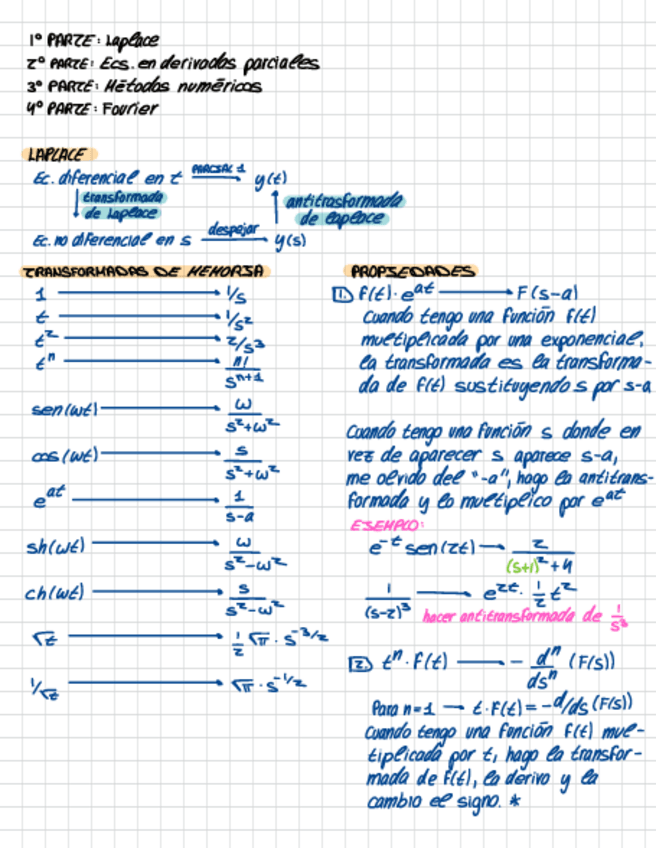 1º PARTE: Laplace
2º PARTE: Ecs. en derivadas parciales
3º PARTE: Métodos numéricos
4º PARTE: Fourier
LAPLACE
Ec. diferencial en t PARCIAL 1 → y(t)
↓ transformada de Laplace
↑ antitrasformada de laplace
Ec. no diferencial en s despejar → y(s)
TRANSFORMADAS DE MEMORIA
1 → 1/s
t → 1/s²
t² → 2/s³
tⁿ → n!/sⁿ⁺¹
sen(wt) → ω/(s²+ω²)
cos(wt) → s/(s²+ω²)
e^at → 1/(s-a)
sh(wt) → ω/(s²-ω²)
ch(wt) → s/(s²-ω²)
√t → 1/2 √π · s^-3/2
1/√t → √π · s^-1/2
PROPIEDADES
1. f(t) · e^at → F(s-a)
Cuando tengo una función f(t)
multiplicada por una exponencial,
la transformada es la transforma-
da de f(t) sustituyendo s por s-a
Cuando tengo una función s donde en
vez de aparecer s aparece s-a,
me olvido del "-a", hago la antitrans-
formada y lo multiplico por e^at
EJEMPLO:
e^-t sen(2t) → 2/((s+1)²+4)
1/(s-2)³ → e^2t · 1/2 t²
hacer antitransformada de 1/s³
2. tⁿ · f(t) → - dⁿ/dsⁿ (F(s))
Para n=1 → t·F(t) = -d/ds (F(s))
Cuando tengo una función f(t) mul-
tiplicada por t, hago la transfor-
mada de f(t), la derivo y la
cambio el signo. *